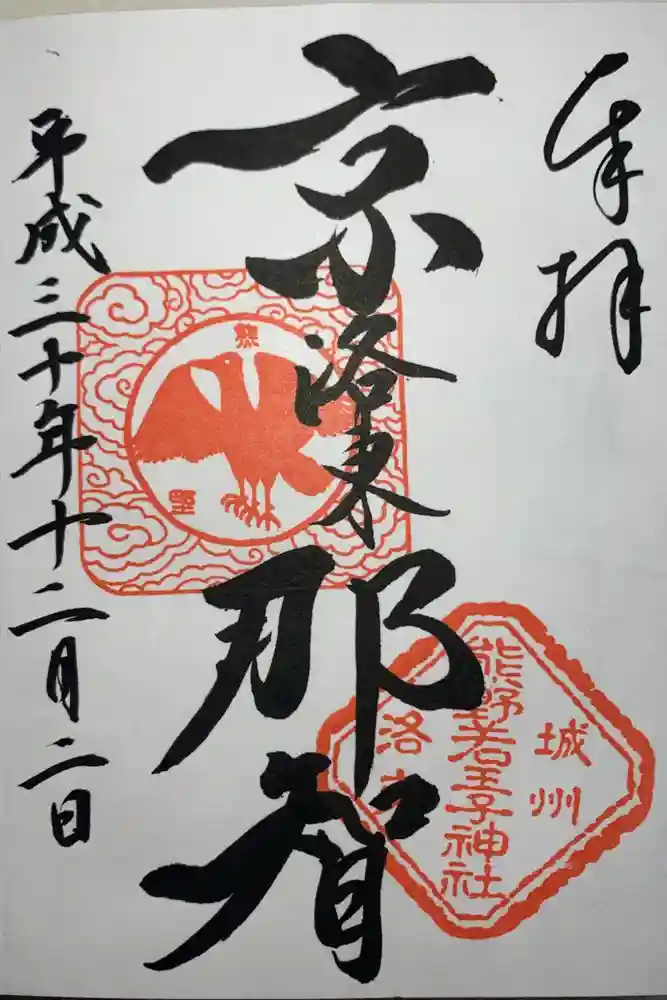 奉拝
京洛東那智
平成三十年十二月二日
熊野
城州
熊野若王子神社
洛東